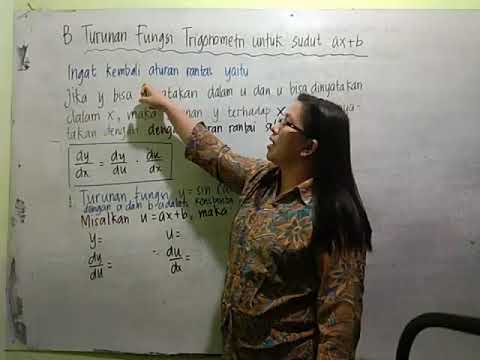 B Turunan Fungsi Trigonometri untuk sudut ax+b
Ingat kembali aturan rantai yaitu
Jika y bisa dinyatakan dalam u dan u bisa dinyatakan
dalam x, maka y terhadap x
takan dengan rantai
dy/dx = dy/du · du/dx
1. Turunan fungsi y = sin
dengan a dan b adalah konstanta
Misalkan u = ax+b, maka
y= u=
dy/du = du/dx =